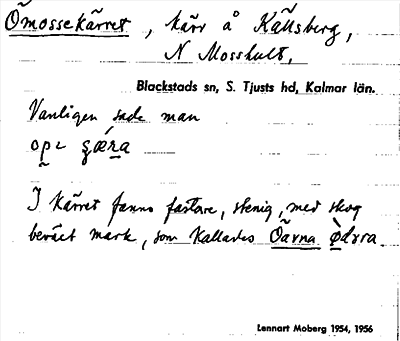 Ömossekärret, kärr å Källsberg,
N Mosshult.
Blackstads sn, S. Tjusts hd, Kalmar län.
Vanligen sade man
I kärret fanns fastare, stenig, med skog
beväxt mark, som kallades Öarna
Lennart Moberg 1954, 1956